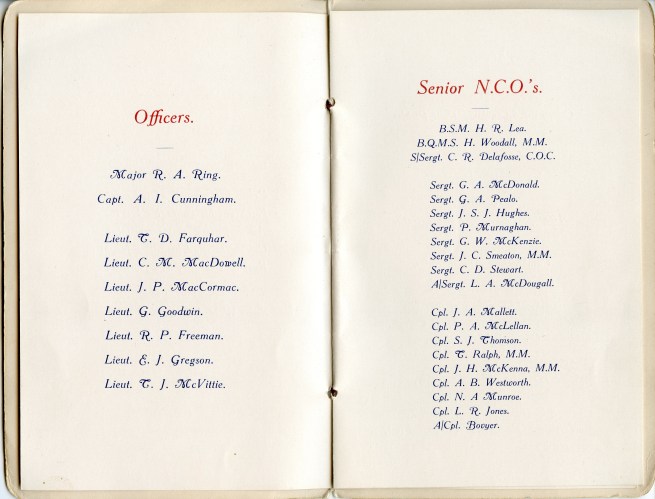 Officers.
Major R. A. Ring.
Capt. A. I. Cunningham.
Lieut. T. D. Farquhar.
Lieut. C. M. MacDowell.
Lieut. J. P. MacCormac.
Lieut. G. Goodwin.
Lieut. R. P. Freeman.
Lieut. E. J. Gregson.
Lieut. T. J. McVittie.
Senior N.C.O.'s.
B.S.M. H. R. Lea.
B.Q.M.S. H. Woodall, M.M.
S|Sergt. C. R. Delafosse, C.O.C.
Sergt. G. A. McDonald.
Sergt. G. A. Pealo.
Sergt. J. S. J. Hughes.
Sergt. P. Murnaghan.
Sergt. G. W. McKenzie.
Sergt. J. C. Smeaton, M.M.
Sergt. C. D. Stewart.
A|Sergt. L. A. McDougall.
Cpl. J. A. Mallett.
Cpl. P. A. McLellan.
Cpl. S. J. Thomson.
Cpl. T. Ralph, M.M.
Cpl. J. H. McKenna, M.M.
Cpl. A. B. Westworth.
Cpl. N. A Munroe.
Cpl. L. R. Jones.
A|Cpl. Bovyer.